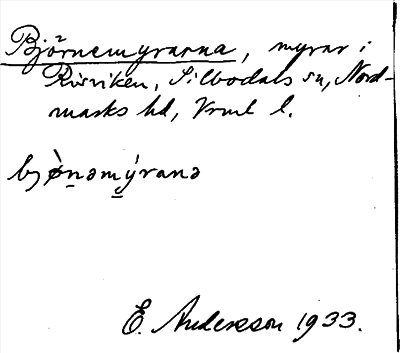 Björnemyrarna, myrar i
Rörviken, Silbodals sn, Nord-
marks hd, Vrml l.
bjø̀ṉəmý̱ranə
E. Andersson 1933.